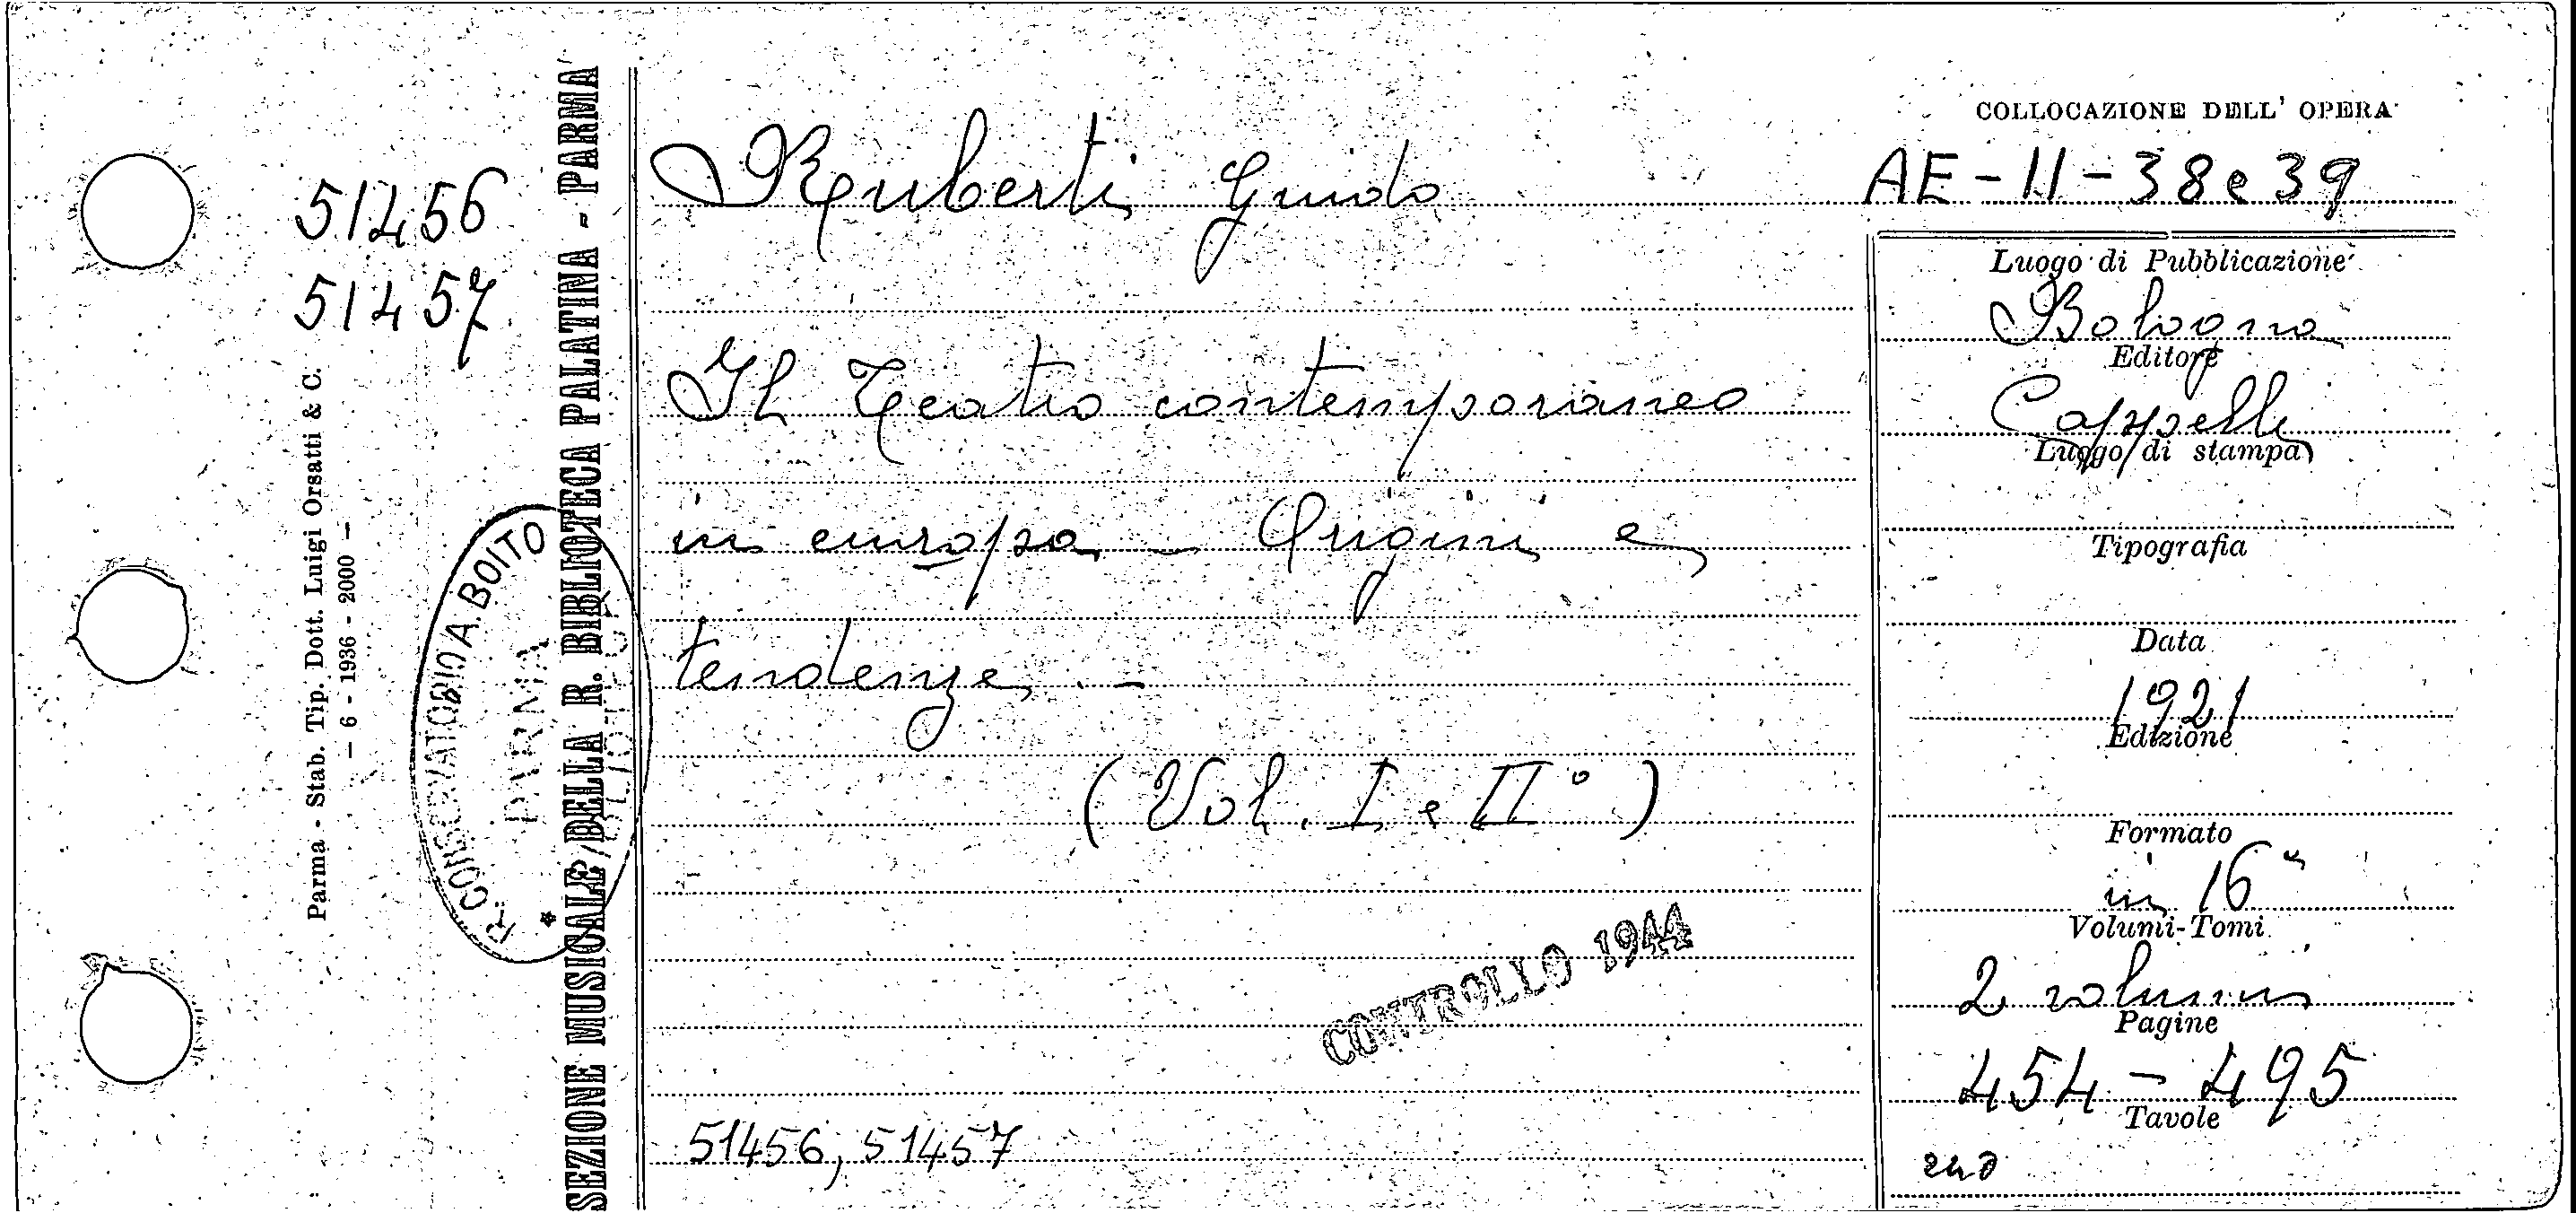 51456
51457
Parma - Stab. Tip. Dott. Luigi Orsatti & C.
— 6 - 1936 - 2000 —
R. CONSERVATORIO A. BOITO
PARMA
SEZIONE MUSICALE DELLA R. BIBLIOTECA PALATINA - PARMA
Ruberti Guido
Il Teatro contemporaneo
in europa – Origini e
tendenze. –
(Vol. I e II°)
CONTROLLO 1944
51456, 51457
COLLOCAZIONE DELL' OPERA
AE - 11 - 38 e 39
Luogo di Pubblicazione
Bologna
Editore
Cappelli
Luogo di stampa
Tipografia
Data
1921
Edizione
Formato
in 16°
Volumi-Tomi
2 volumi
Pagine
454 – 495
Tavole